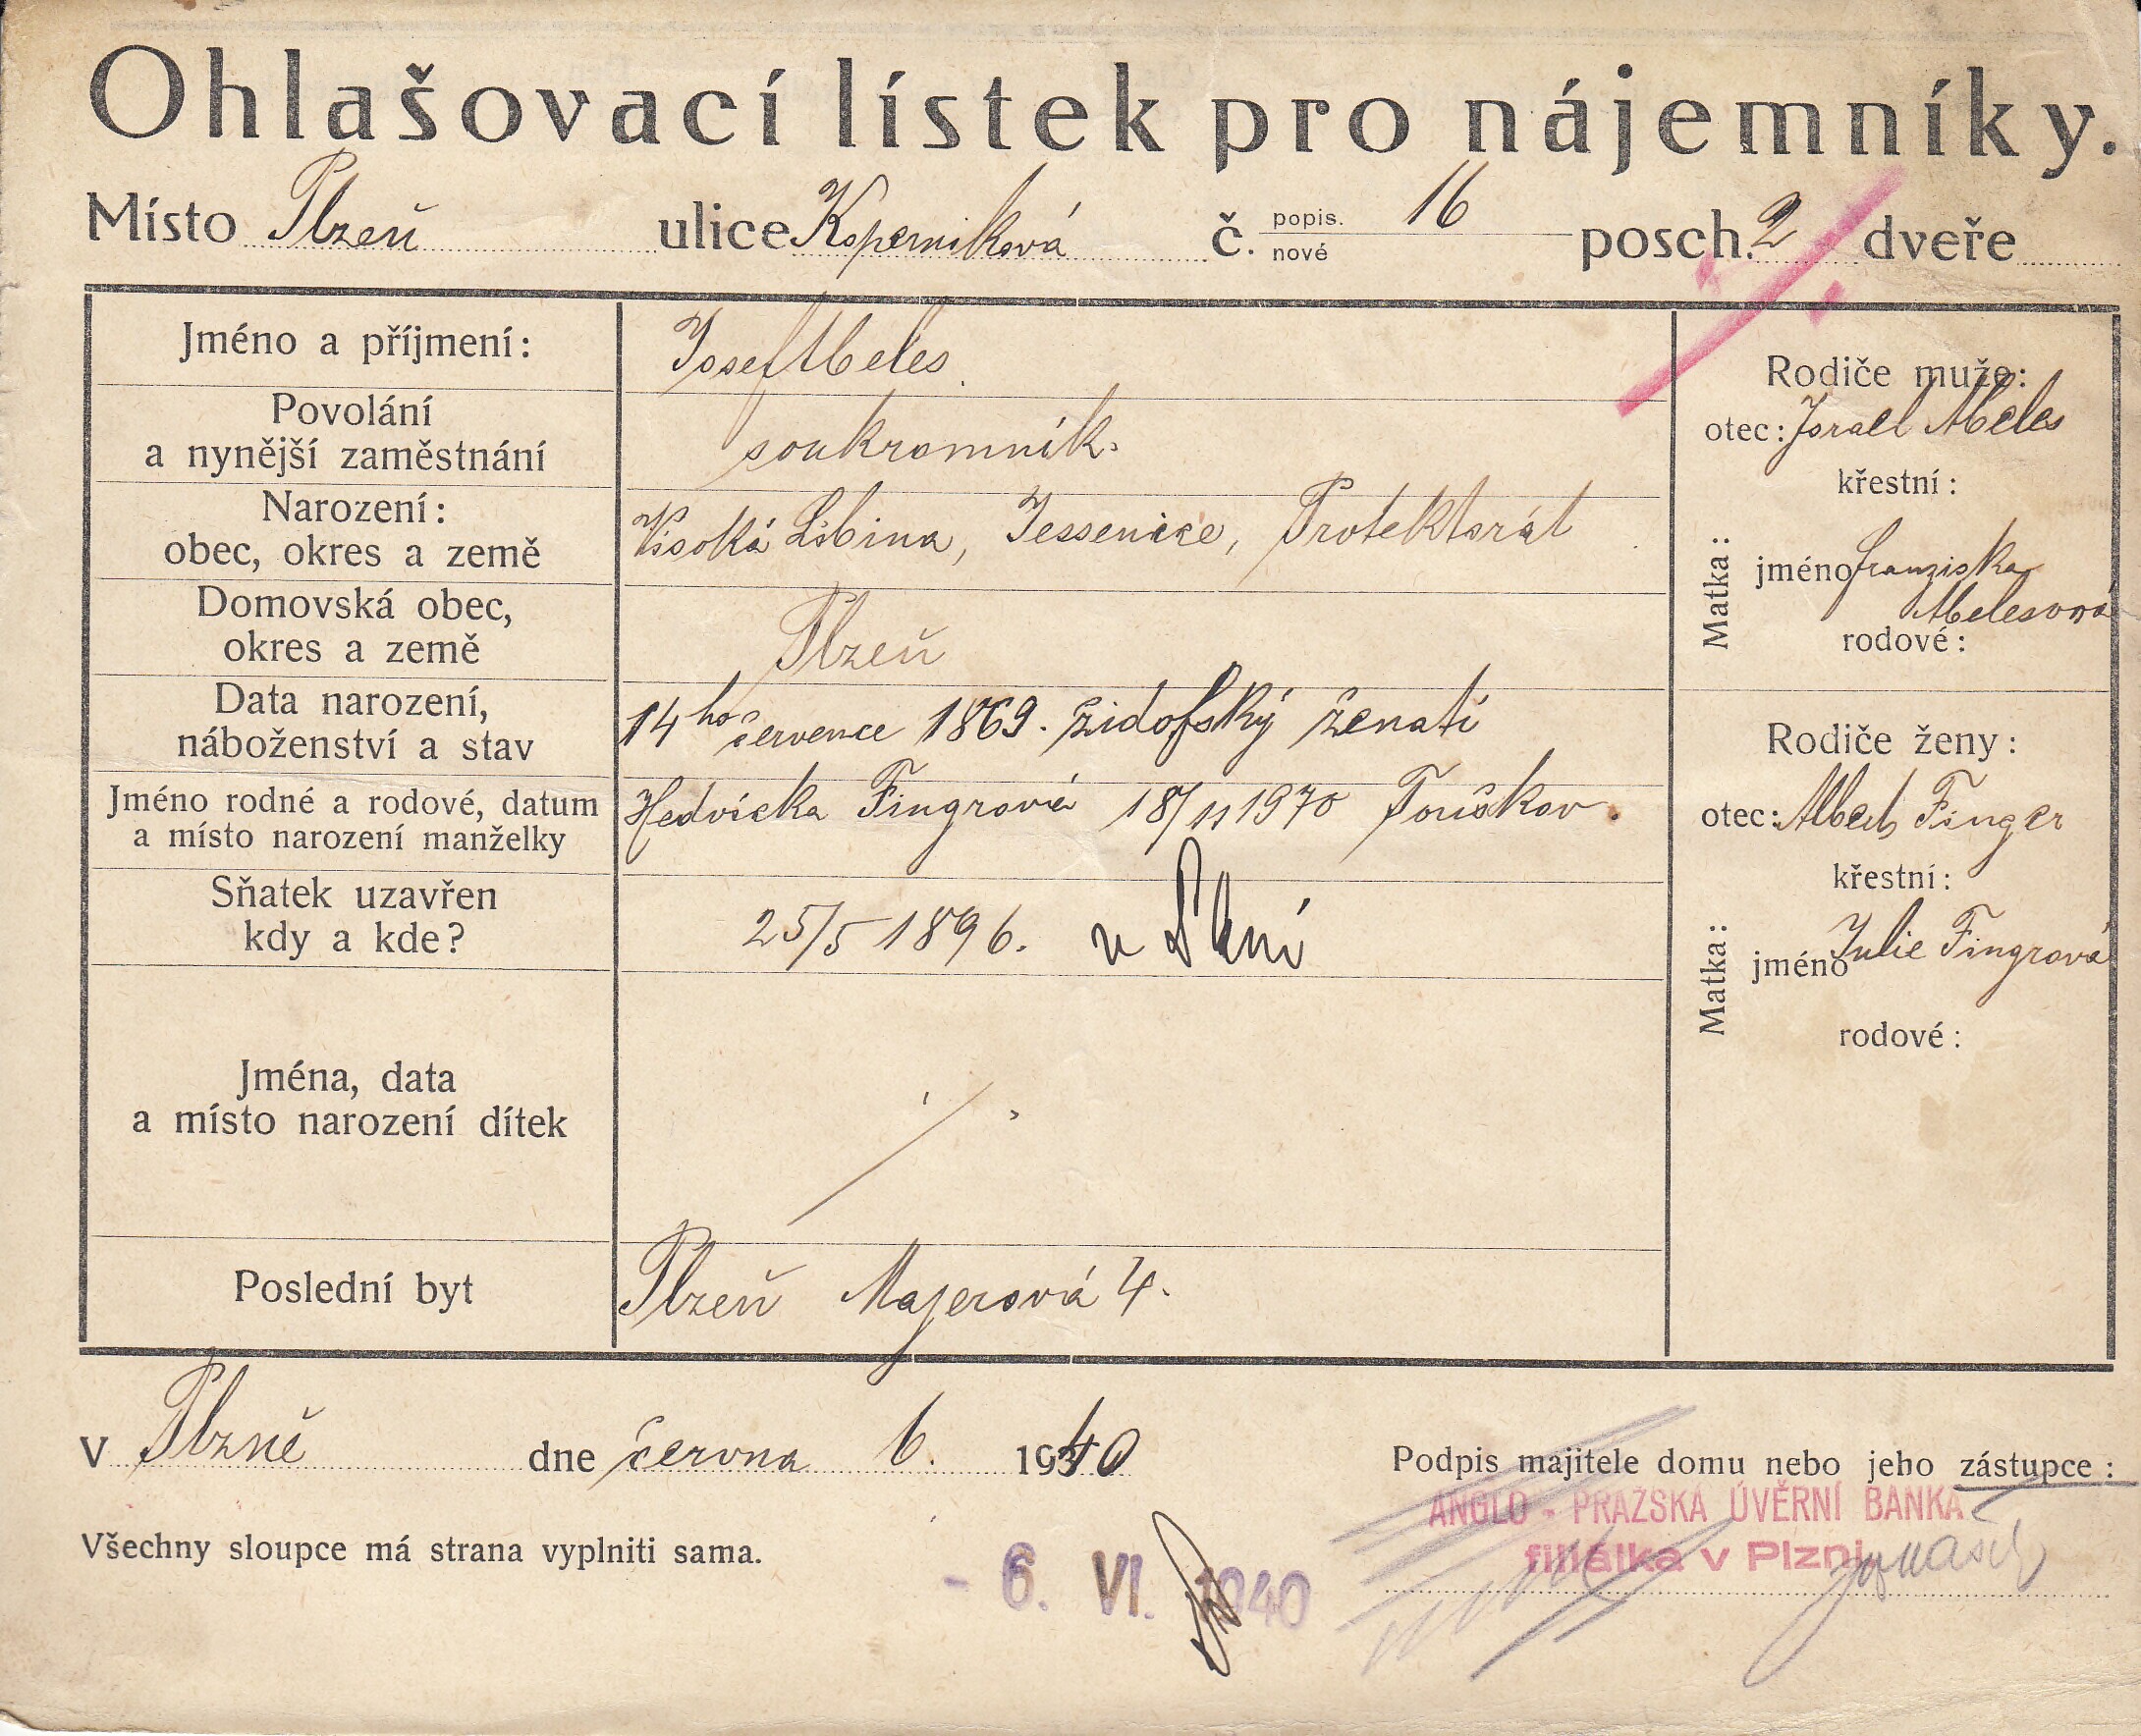 Ohlašovací lístek pro nájemníky.
Místo Plzeň ulice Koperniková č. popis. nové 16 posch. 2 dveře
Jméno a příjmení: Josef Abeles
Povolání
a nynější zaměstnání soukromník.
Narození:
obec, okres a země Visoká Libina, Jessenice, Protektorát
Domovská obec,
okres a země Plzeň
Data narození,
náboženství a stav 14ho července 1869. židofský ženati
Jméno rodné a rodové, datum
a místo narození manželky Hedvicka Fingrová 18/11 1970 Touškov.
Sňatek uzavřen
kdy a kde? 25/5 1896.
Jména, data
a místo narození dítek
Poslední byt Plzeň Majerová 4.
Rodiče muže:
otec: Israel Abeles
křestní:
Matka: jméno Franziska
Abelesová
rodové:
Rodiče ženy:
otec: Albert Finger
křestní:
Matka: jméno Julie Fingrová
rodové:
V Plzně dne června 6. 1940
Podpis majitele domu nebo jeho zástupce:
ANGLO - PRAŽSKÁ ÚVĚRNÍ BANKA
filiálka v Plzni
Všechny sloupce má strana vyplniti sama.
- 6. VI. 1940